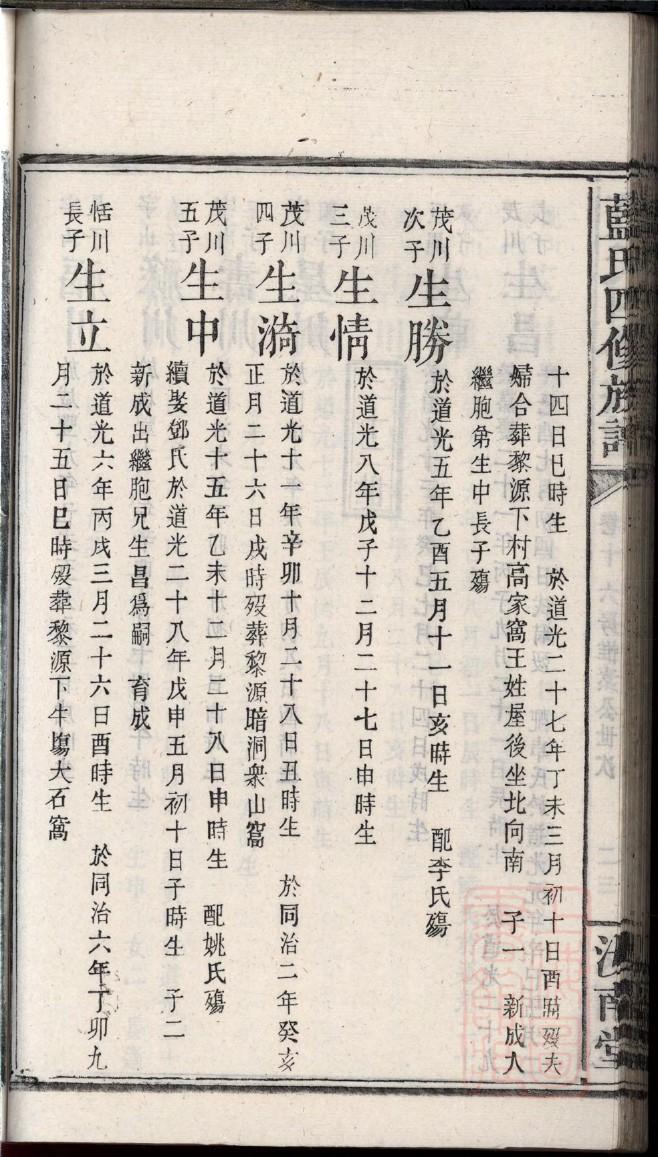 藍氏四修族譜
卷十六房惟泰公世次
二三
汝南堂
十四日巳時生　於道光二十七年丁未三月初十日酉時歿夫
婦合葬黎源下村高家窩王姓屋後坐北向南　子一　新成入
繼胞弟生中長子殤
茂川次子生勝　於道光五年乙酉五月十一日亥時生　配李氏殤
茂川三子生情　於道光八年戊子十二月二十七日申時生
茂川四子生漪　於道光十一年辛卯十月二十八日丑時生　於同治二年癸亥
正月二十六日戌時歿葬黎源暗洞衆山窩
茂川五子生中　於道光十五年乙未十二月二十八日申時生　配姚氏殤
續娶鄧氏於道光二十八年戊申五月初十日子時生　子二
新成出繼胞兄生昌爲嗣　育成
恬川長子生立　於道光六年丙戌三月二十六日酉時生　於同治六年丁卯九
月二十五日巳時歿葬黎源下牛塲大石窩